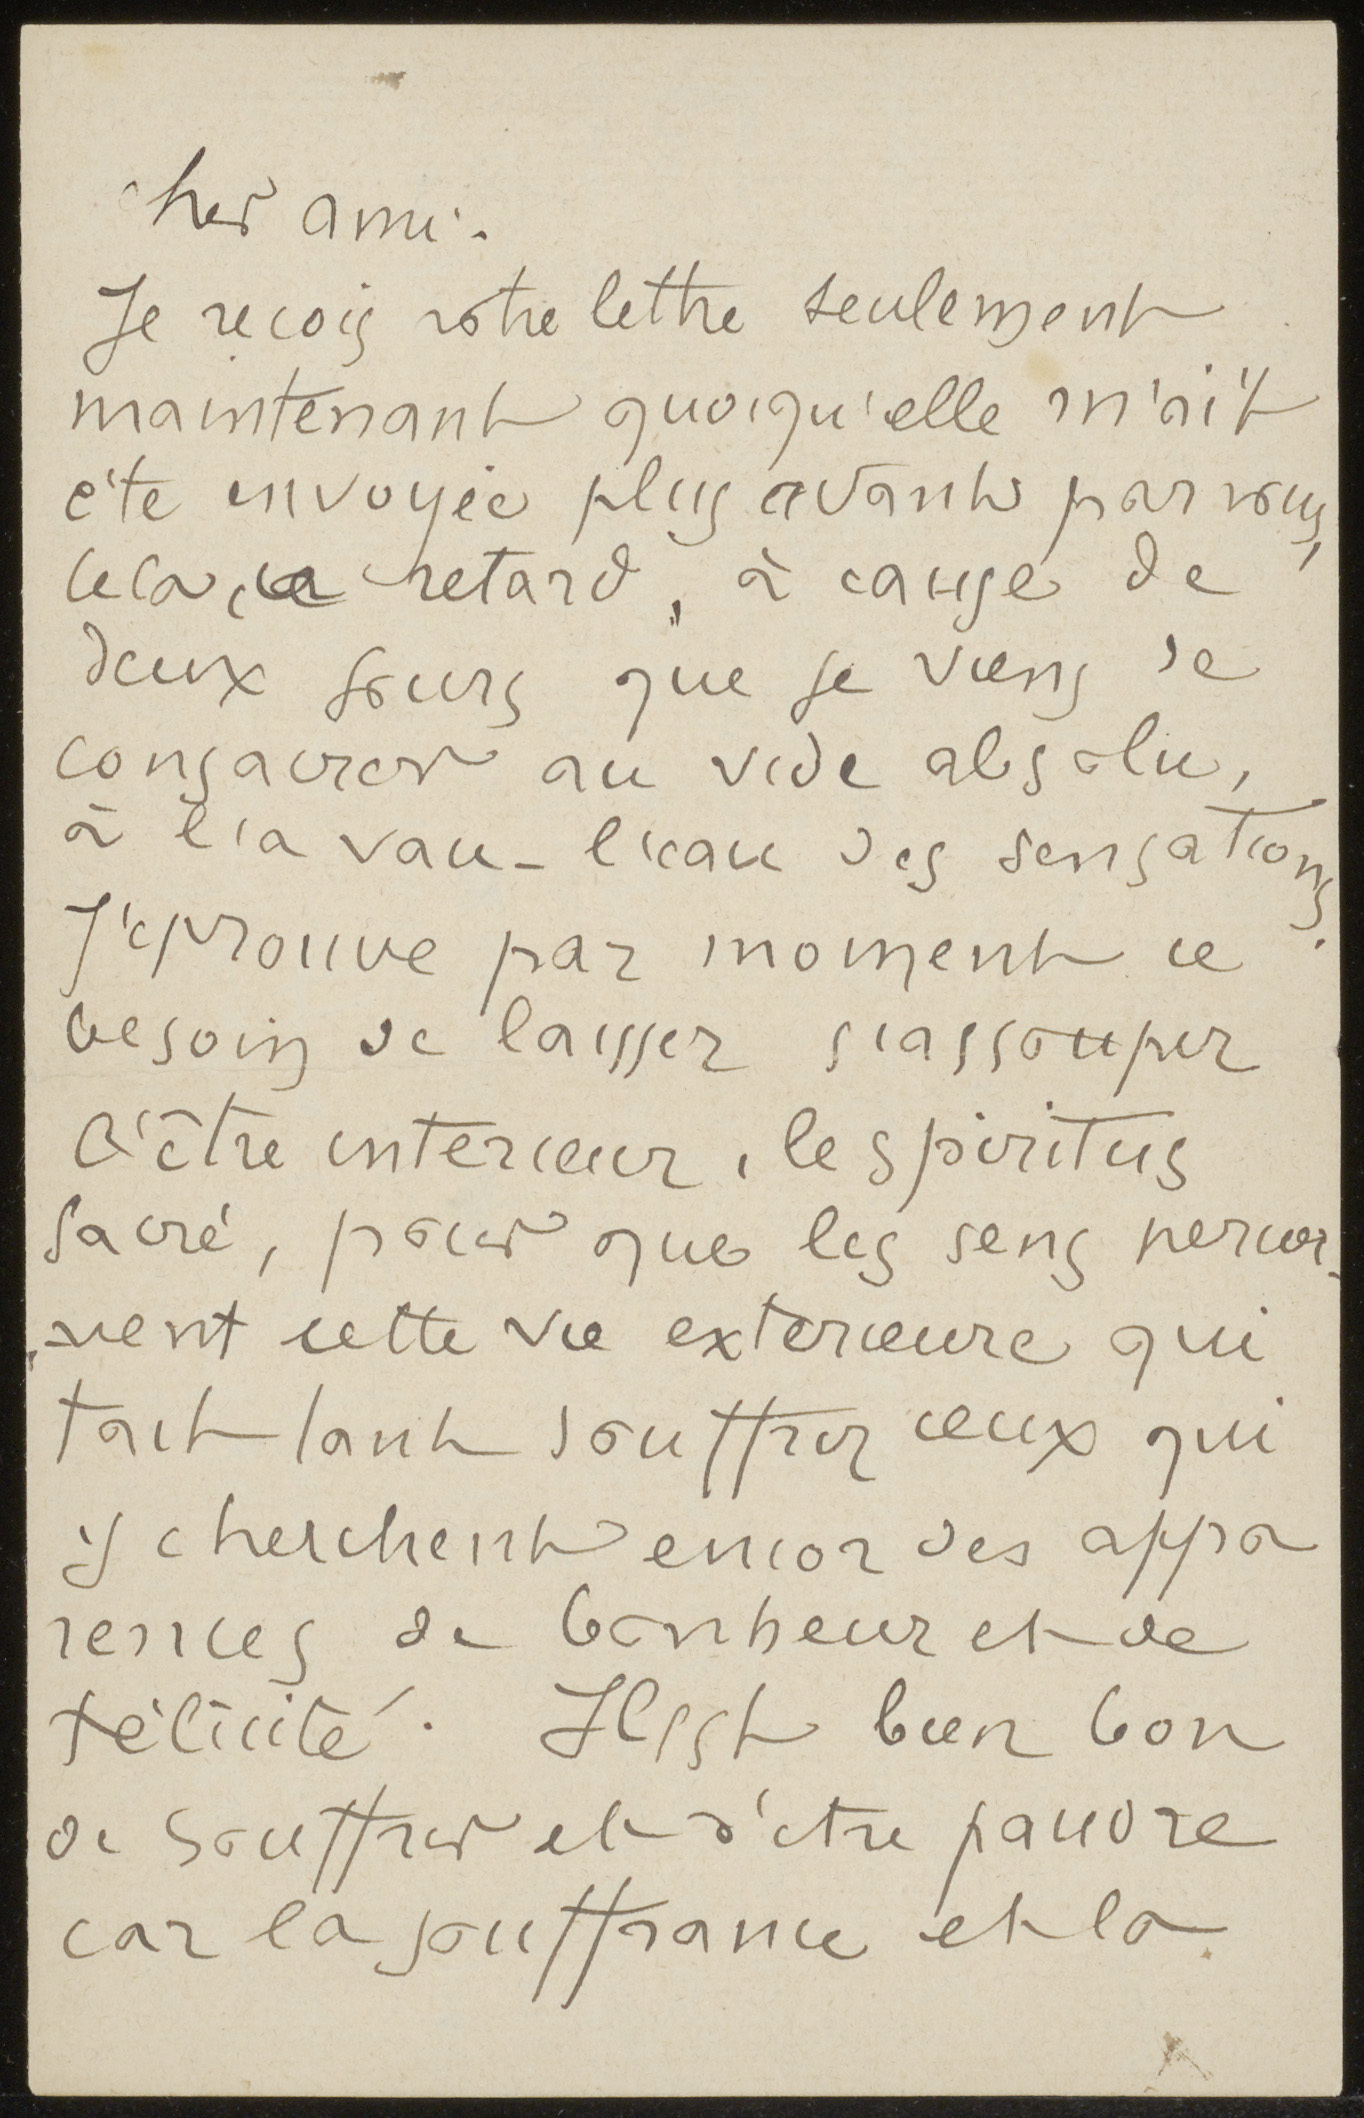 cher ami.
Je recois votre lettre seulement
maintenant quoiqu'elle m'ait
été envoyée plus avant par vous,
cela, ce retard, à cause de
deux jours que je viens de
consacrer au vide absolu,
à l'a vau-l'eau des sensations.
J'éprouve par moment ce
besoin de laisser s'assoupir
l'être interieur, le spiritus
sacré, pour que les sens
-nent cette vie exterieure qui
fait tant souffrir ceux qui
y cherchent encor des appa
rences de bonheur et de
félicité. Il est bien bon
de souffrir et d'etre pauvre
car la souffrance et la